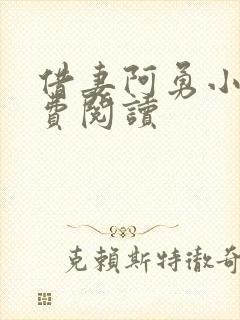 借妻阿勇小
費閱讀
克賴斯特徹奇